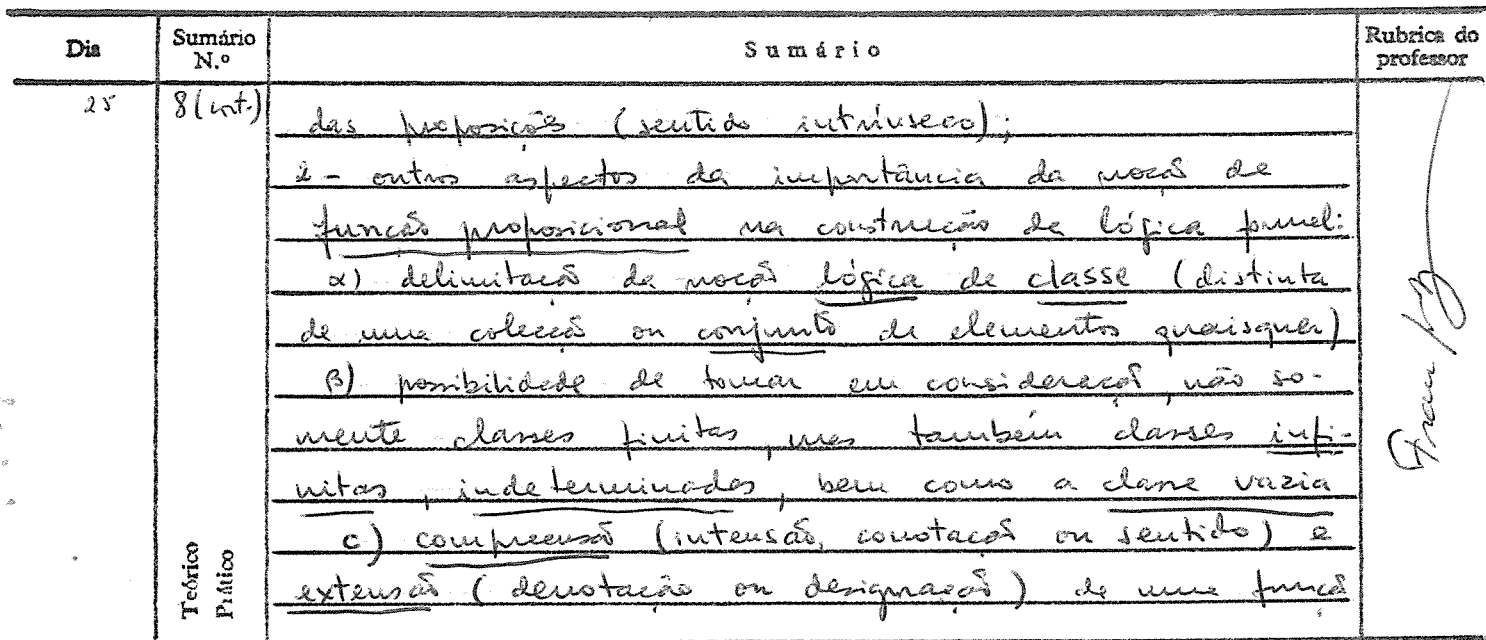 Dia Sumário N.º Sumário Rubrica do professor
25 8 (cont.) das proposições (sentido intrínseco);
2 - outros aspectos da importância da noção de
função proposicional na construção da lógica formal:
α) delimitação da noção lógica de classe (distinta
de uma colecção ou conjunto de elementos quaisquer)
β) possibilidade de tomar em consideração, não so-
mente classes finitas, mas também classes infi-
nitas, indeterminadas, bem como a classe vazia
c) compreensão (intensão, conotação ou sentido) e
extensão (denotação ou designação) de uma função
Teórico
Prático